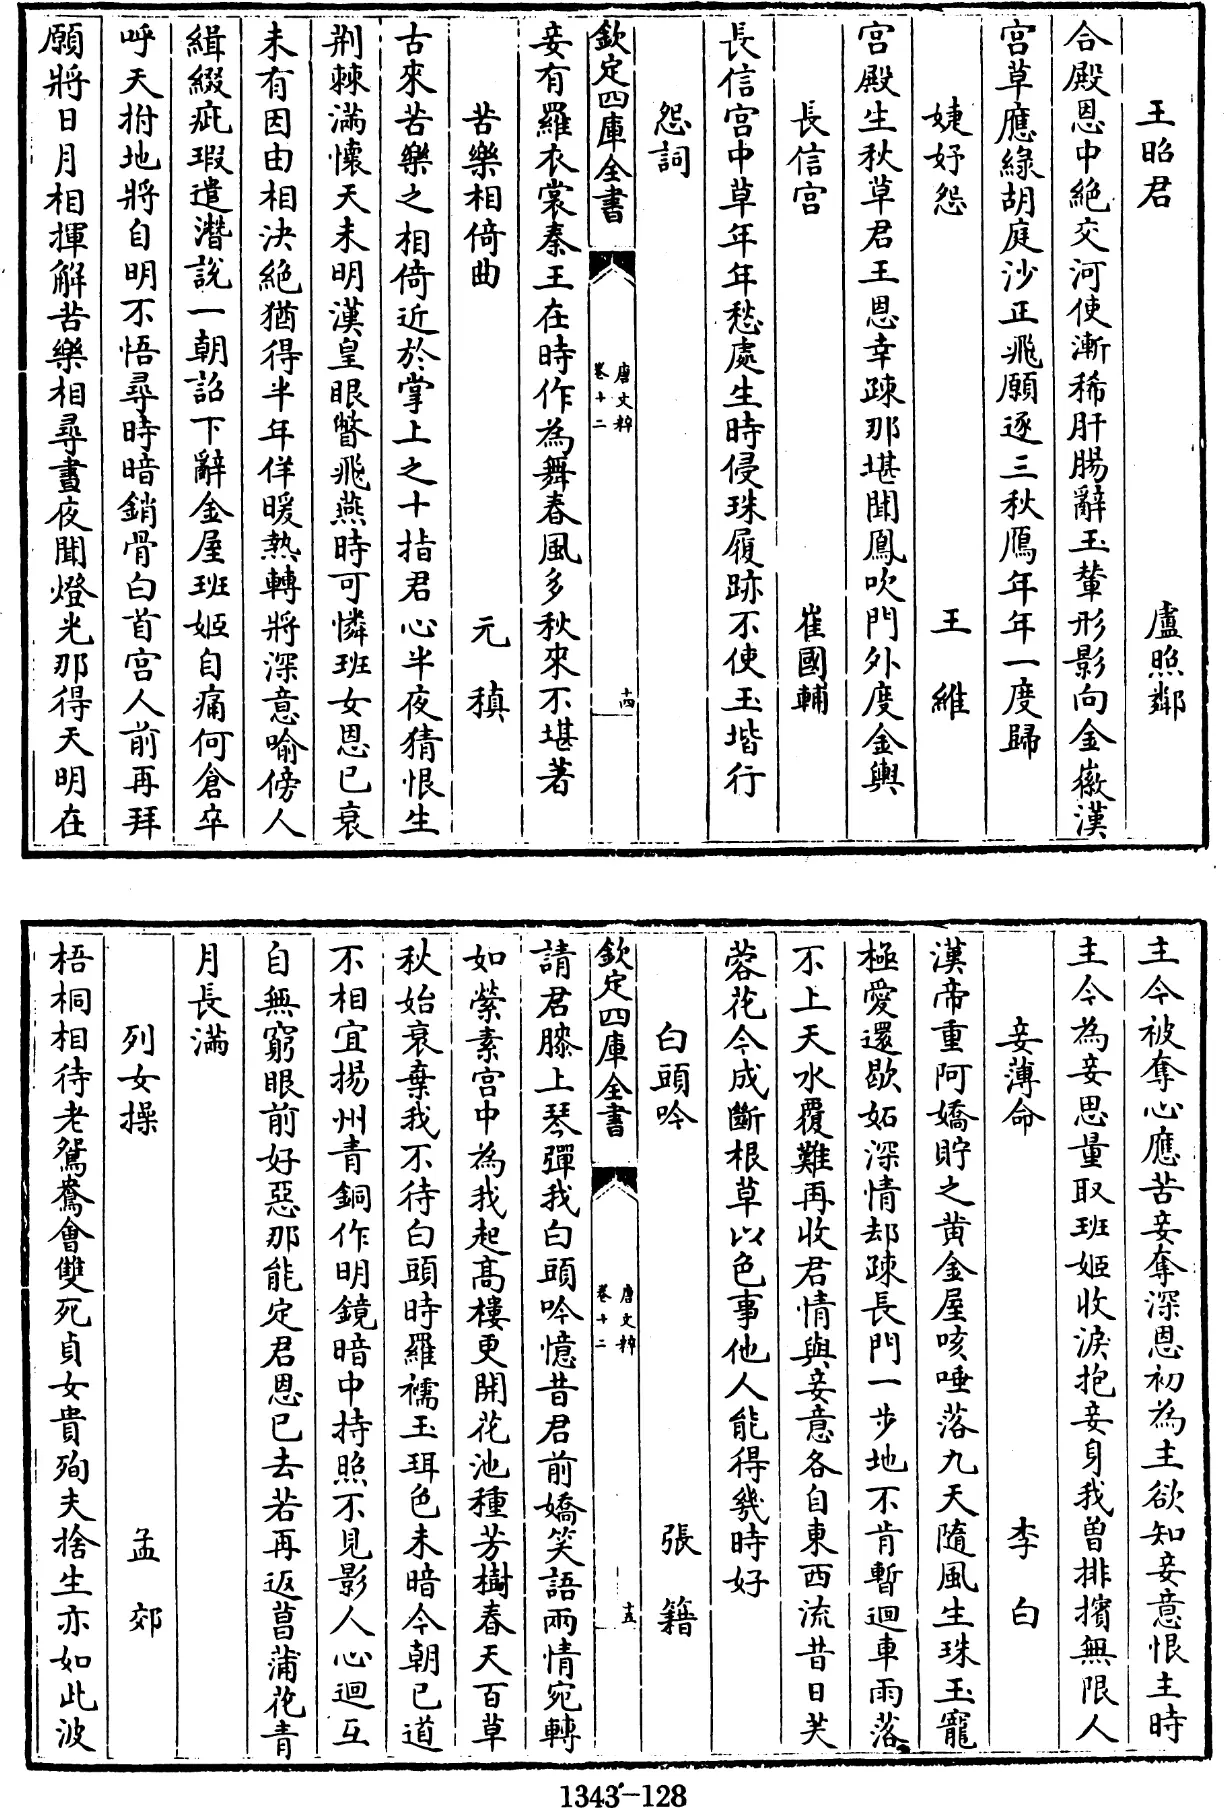 王昭君　盧照鄰
合殿恩中絶交河使漸稀肝腸辭玉輦形影向金徽漢
宫草應綠胡庭沙正飛願逐三秋鴈年年一度歸
婕妤怨　王維
宫殿生秋草君王恩幸疎那堪聞鳳吹門外度金輿
長信宫　崔國輔
長信宫中草年年愁處生時侵珠履跡不使玉堦行
怨詞
欽定四庫全書　唐文粹　卷十二　十四
妾有羅衣裳秦王在時作為舞春風多秋來不堪著
苦樂相倚曲　元稹
古來苦樂之相倚近於掌上之十指君心半夜猜恨生
荆棘滿懷天未明漢皇眼瞥飛燕時可憐班女恩已衰
未有因由相決絶猶得半年佯暖熱轉將深意喻傍人
緝綴疵瑕遣潛說一朝詔下辭金屋班姬自痛何倉卒
呼天拊地將自明不悟尋時暗銷骨白首宫人前再拜
願將日月相揮解苦樂相尋晝夜聞燈光那得天明在
主今被奪心應苦妾奪深恩初為主欲知妾意恨主時
主今為妾思量取班姬收淚抱妾身我曽排擯無限人
妾薄命　李白
漢帝重阿嬌貯之黄金屋咳唾落九天隨風生珠玉寵
極愛還歇妬深情却疎長門一步地不肯暫迴車雨落
不上天水覆難再收君情與妾意各自東西流昔日芙
蓉花今成斷根草以色事他人能得幾時好
白頭吟　張籍
欽定四庫全書　唐文粹　卷十二　十五
請君膝上琴彈我白頭吟憶昔君前嬌笑語兩情宛轉
如縈素宫中為我起髙樓更開花池種芳樹春天百草
秋始衰棄我不待白頭時羅襦玉珥色未暗今朝已道
不相宜揚州青銅作明鏡暗中持照不見影人心迴互
自無窮眼前好惡那能定君恩已去若再返菖蒲花青
月長滿
列女操　孟郊
梧桐相待老鴛鴦會雙死貞女貴殉夫捨生亦如此波
1343-128